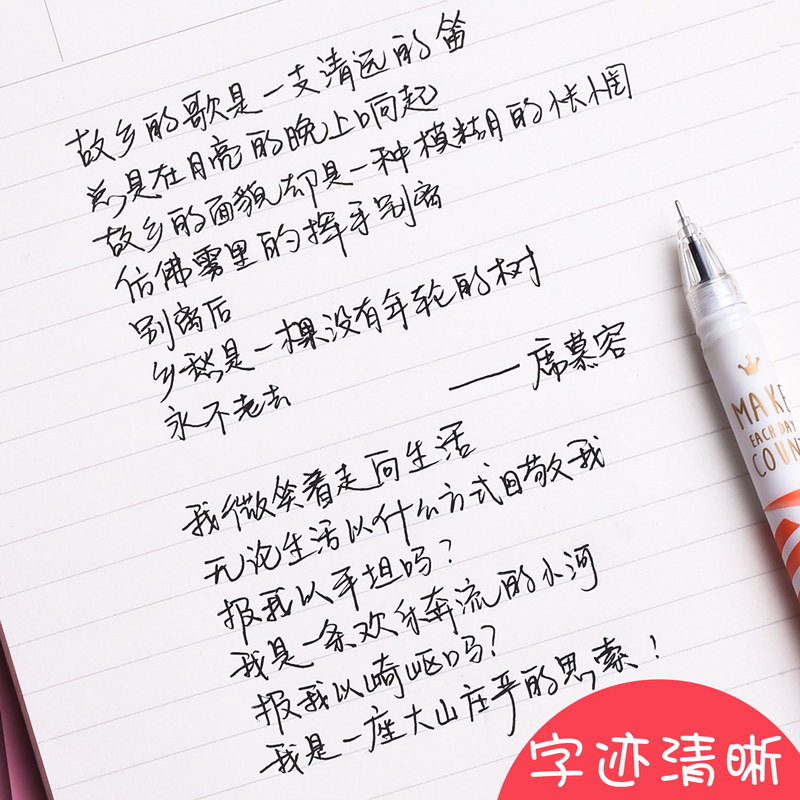 故乡的歌是一支清远的笛
总是在月亮的晚上响起
故乡的面貌却是一种模糊的怅惘
仿佛雾里的挥手别离
别离后
乡愁是一棵没有年轮的树
永不老去
——席慕容
我微笑着走向生活
无论生活以什么方式回敬我
报我以平坦吗?
我是一条欢乐奔流的小河
报我以崎岖吗?
我是一座大山庄严的思索!
MAKE
EACH DAY
COUN
字迹清晰